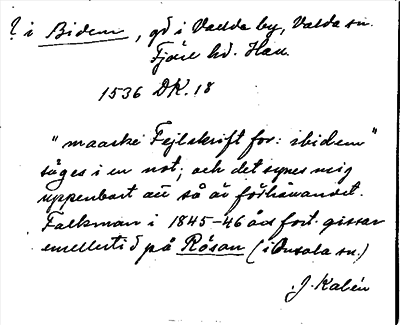 ? i Bidem, gd i Vallda by, Vallda sn.
Fjäre hd. Hall.
1536 DK. 18
"maaske Fejlskrift for: ibidem"
säges i en not; och det synes mig
uppenbart att så är förhållandet.
Falkman i 1845-46 års fort. gissar
emellertid på Råsan (i Onsala sn.)
J. Kalén